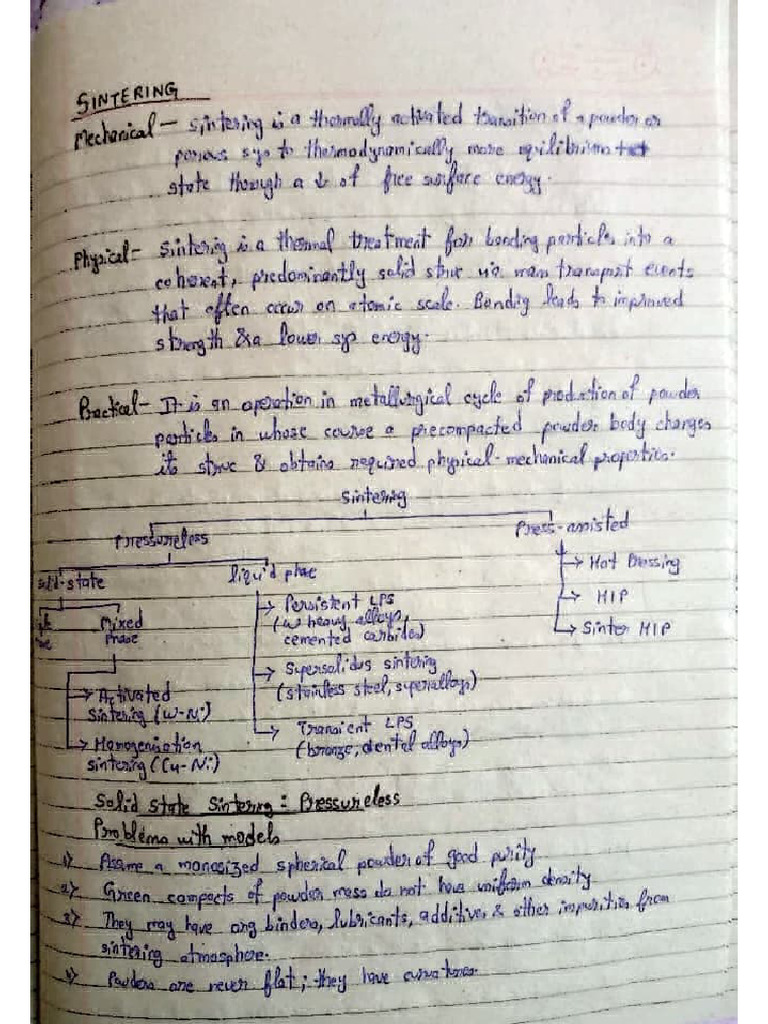 SINTERING
Mechanical – Sintering is a thermally activated transition of a powder or
porous sys to thermodynamically more eqilibrium
state through a ↓ of free surface energy.
Physical – Sintering is a thermal treatment for bonding particles into a
coherent, predominantly solid struc via mass transport events
that often occur on atomic scale. Bonding leads to improved
strength & a lower sys energy.
Practical – It is an operation in metallurgical cycle of production of powder
particles in whose course a precompacted powder body changes
its struc & obtains required physical-mechanical properties.
Sintering
Pressureless
Press-assisted
solid-state
liquid phase
→ Hot Pressing
→ HIP
→ Sinter HIP
Mixed
Phase
→ Persistent LPS
(W heavy alloys,
cemented carbides)
→ Supersolidus sintering
(stainless steel, superalloys)
→ Transient LPS
(bronze, dental alloys)
→ Activated
sintering (W-Ni)
→ Homogenisation
sintering (Cu-Ni)
Solid state sintering = Pressureless
Problems with models
1) Assume a monosized spherical powder of good purity
2) Green compacts of powder mass do not have uniform density
3) They may have org binders, lubricants, additives & other impurities from
sintering atmosphere.
4) Powders are never flat; they have curvatures.